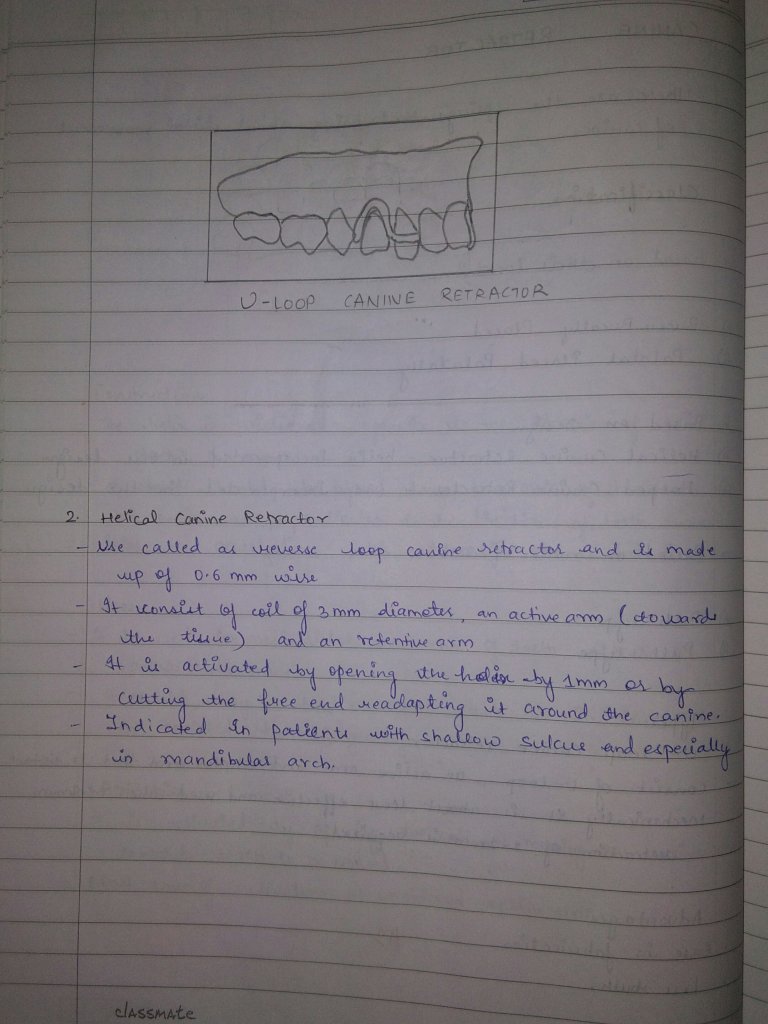 U-LOOP CANINE RETRACTOR
2. Helical Canine Retractor
- Use called as reverse loop canine retractor and is made
up of 0.6 mm wire
- It consist of coil of 3mm diameter, an active arm (toward
the tissue) and an retentive arm
- It is activated by opening the by 1mm or by
cutting the free end readapting it around the canine.
- Indicated in patients with shallow sulcus and especially
in mandibular arch.
classmate